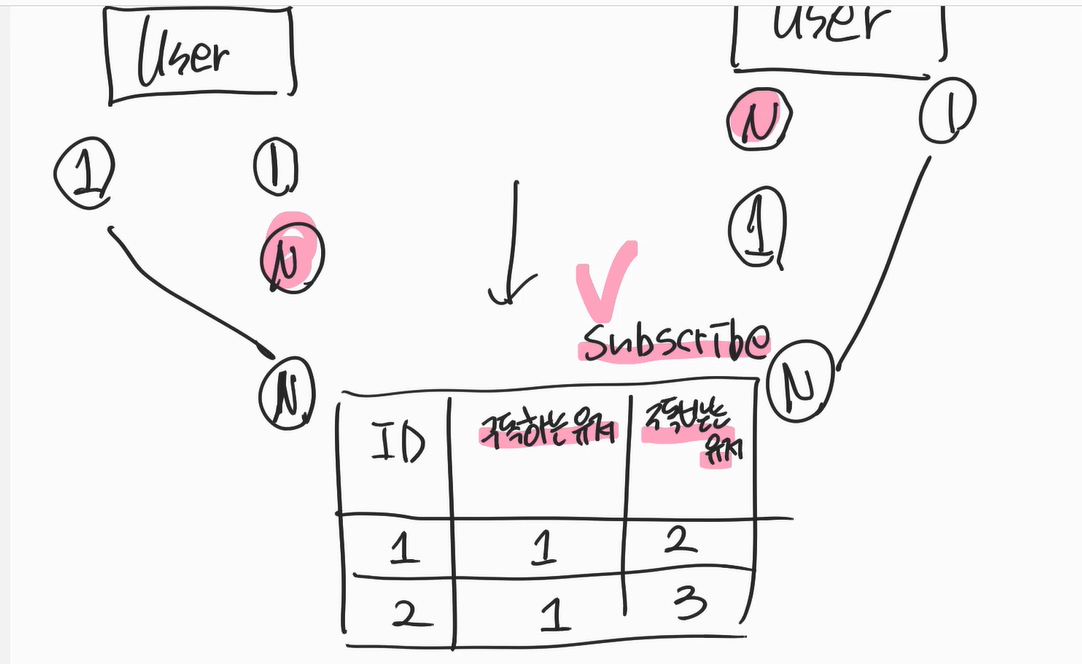 User
User
N
1
1
1
N
1
Subscribe
N
N
ID
구독하는 유저
구독받는
유저
1
1
2
2
1
3